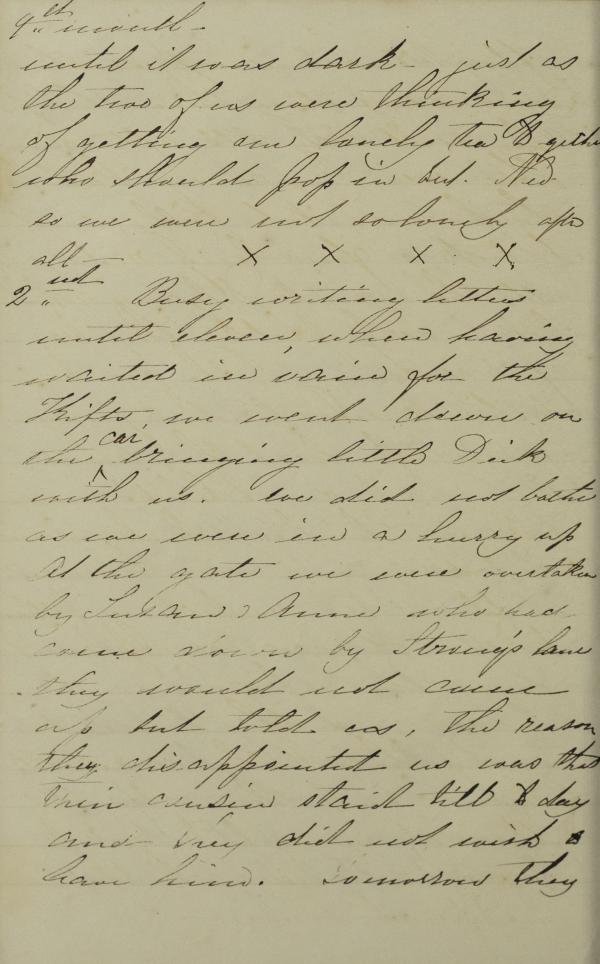 9th month -
until it was dark - just as
the two of us were thinking
of getting our lonely tea together
who should pop in but Ned
so we were not so lonely after
all - X X X X
2nd Busy writing letters
until eleven, when having
waited in vain for the
Kifts, we went down on
the car bringing little Dick
with us. We did not bathe
as we were in a hurry up
At the gate we were overtaken
by Susan & Anne who had
come down by Strong's lane
they would not come
up but told us, the reason
they disappointed us was that
their cousin staid till to day
and they did not wish to
leave him. tomorrow they